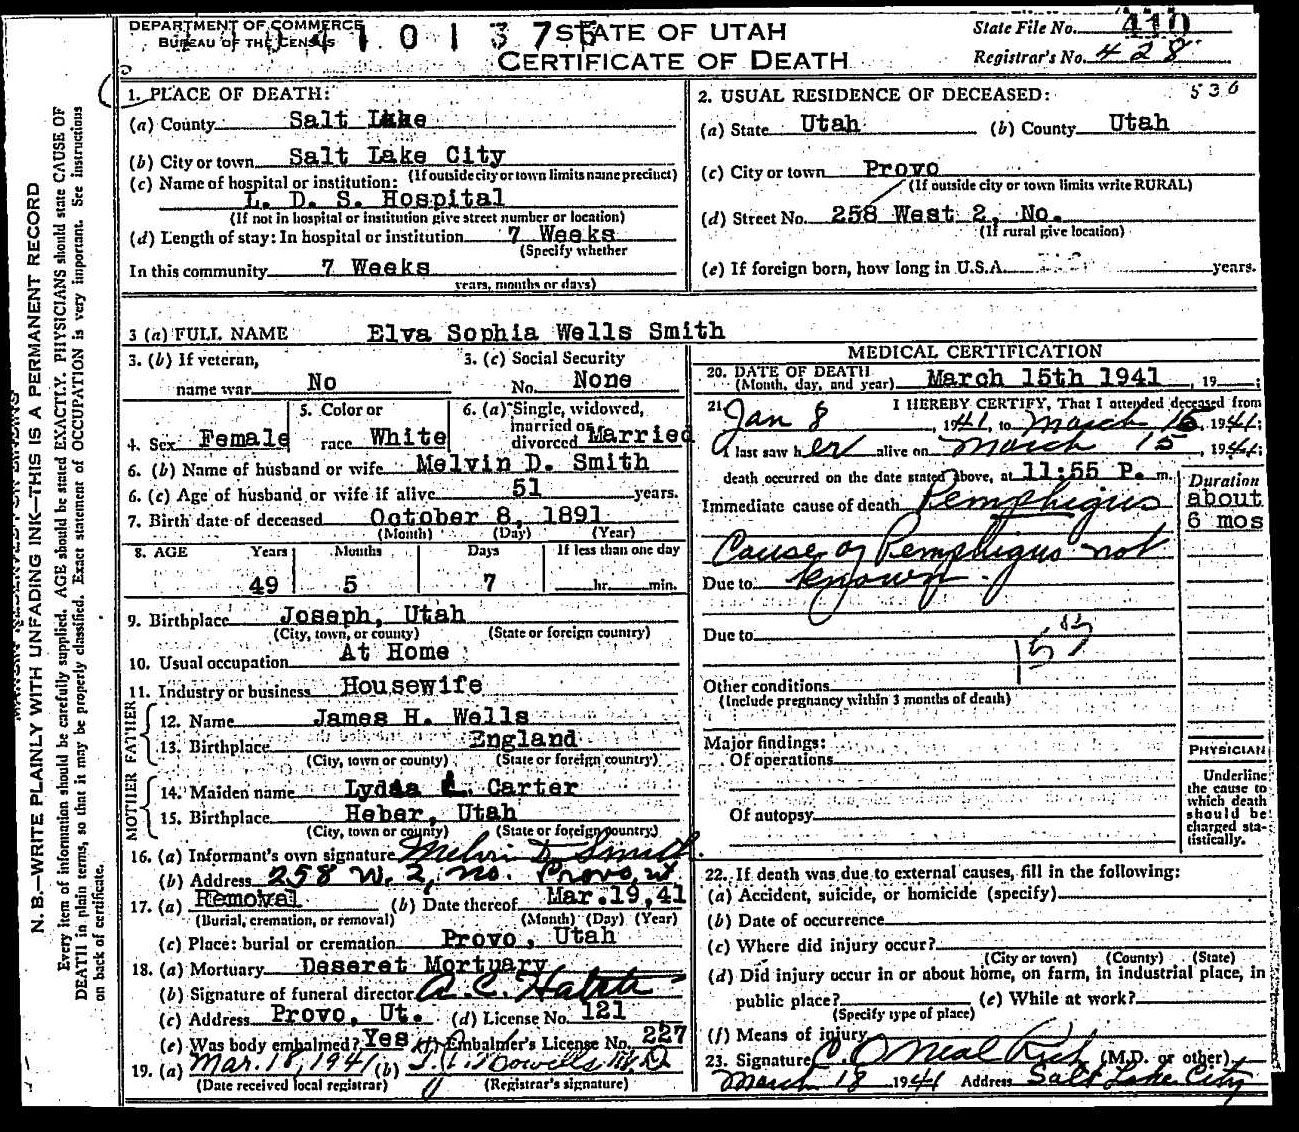 DEPARTMENT OF COMMERCE
BUREAU OF THE CENSUS
STATE OF UTAH
CERTIFICATE OF DEATH
State File No. 410
Registrar's No. 428
1. PLACE OF DEATH:
(a) County Salt Lake
(b) City or town Salt Lake City
(If outside city or town limits name precinct)
(c) Name of hospital or institution:
L. D. S. Hospital
(If not in hospital or institution give street number or location)
(d) Length of stay: In hospital or institution 7 Weeks
(Specify whether
In this community 7 Weeks
years, months or days)
530
2. USUAL RESIDENCE OF DECEASED:
(a) State Utah (b) County Utah
(c) City or town Provo
(If outside city or town limits write RURAL)
(d) Street No. 258 West 2, No.
(If rural give location)
(e) If foreign born, how long in U.S.A. years.
3 (a) FULL NAME Elva Sophia Wells Smith
3. (b) If veteran,
name war No
3. (c) Social Security
No. None
4. Sex Female
5. Color or
race White
6. (a) Single, widowed,
married or
divorced Married
6. (b) Name of husband or wife Melvin D. Smith
6. (c) Age of husband or wife if alive 51 years.
7. Birth date of deceased October 8, 1891
(Month) (Day) (Year)
8. AGE Years Months Days If less than one day
49 5 7 hr. min.
9. Birthplace Joseph, Utah
(City, town, or county) (State or foreign country)
10. Usual occupation At Home
11. Industry or business Housewife
FATHER
12. Name James H. Wells
13. Birthplace England
(City, town or county) (State or foreign country)
MOTHER
14. Maiden name Lydia L. Carter
15. Birthplace Heber, Utah
(City, town or county) (State or foreign country)
16. (a) Informant's own signature Melvin D. Smith
(b) Address 258 W. 2, No. Provo, Ut
17. (a) Removal (b) Date thereof Mar. 19, 41
(Burial, cremation, or removal) (Month) (Day) (Year)
(c) Place: burial or cremation Provo, Utah
18. (a) Mortuary Deseret Mortuary
(b) Signature of funeral director A. C.
(c) Address Provo, Ut. (d) License No. 121
(e) Was body embalmed? Yes (f) Embalmer's License No. 227
19. (a) Mar. 18, 1941 (b)
(Date received local registrar) (Registrar's signature)
MEDICAL CERTIFICATION
20. DATE OF DEATH
(Month, day, and year) March 15th 1941, 19 ;
21. I HEREBY CERTIFY, That I attended deceased from
Jan 8, 1941, to March 15, 1941;
I last saw her alive on March 15, 1941;
death occurred on the date stated above, at 11:55 P. m.
Duration
Immediate cause of death Pemphigus
about
6 mos
Cause of Pemphigus not
Due to known.
Due to
153
Other conditions
(Include pregnancy within 3 months of death)
Major findings:
Of operations
Of autopsy
PHYSICIAN
Underline
the cause to
which death
should be
charged sta-
tistically.
22. If death was due to external causes, fill in the following:
(a) Accident, suicide, or homicide (specify)
(b) Date of occurrence
(c) Where did injury occur?
(City or town) (County) (State)
(d) Did injury occur in or about home, on farm, in industrial place, in
public place? (e) While at work?
(Specify type of place)
(f) Means of injury
23. Signature C. O'Neal Rich (M.D. or other)
March 18 1941 Address Salt Lake City
N. B.—WRITE PLAINLY WITH UNFADING INK—THIS IS A PERMANENT RECORD
Every item of information should be carefully supplied. AGE should be stated EXACTLY. PHYSICIANS should state CAUSE OF
DEATH in plain terms, so that it may be properly classified. Exact statement of OCCUPATION is very important. See instructions
on back of certificate.